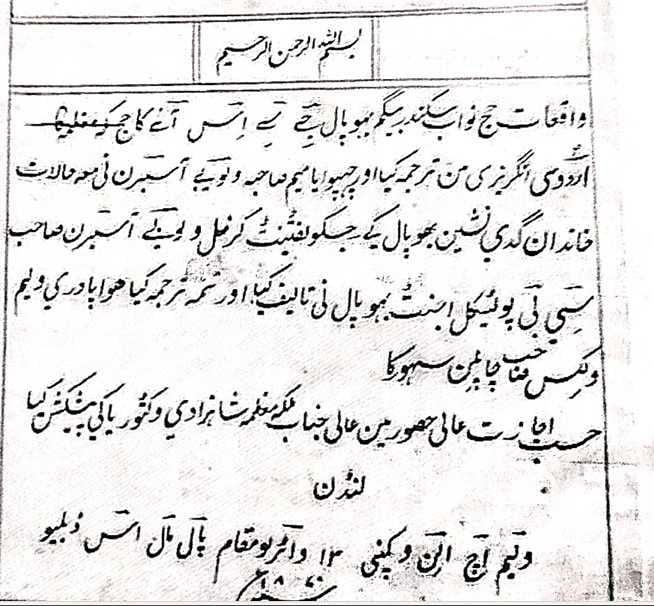 بسم الله الرحمن الرحیم
واقعات حج نواب سکندر بیگم بھوپال جے سے اس آے کا حج
اردوسی انگریزی من ترجمہ کیا اور چھپوایا میم صاحبہ و لوبے آسبرن نی معہ حالات
خاندان گدی نشین بھوپال کے جسکو لفٹینٹ کرنل و لوبے آسبرن صاحب
سی بی پولیٹکل اجنٹ بھوپال نی تالیف کیا اور تتمہ ترجمہ کیا ھوا پادری ولیم
ولکنس صاحب چاپلن سیہو کا
حسب اجازت عالی حضور مین عالی جناب ملکہ معظمہ شاہزادی وکٹوریا کی پیشکش کیا
لنڈن
ولیم اچ الن و کمپنی ۱۳ واٹرلو مقام پال مال اس ڈبلیو